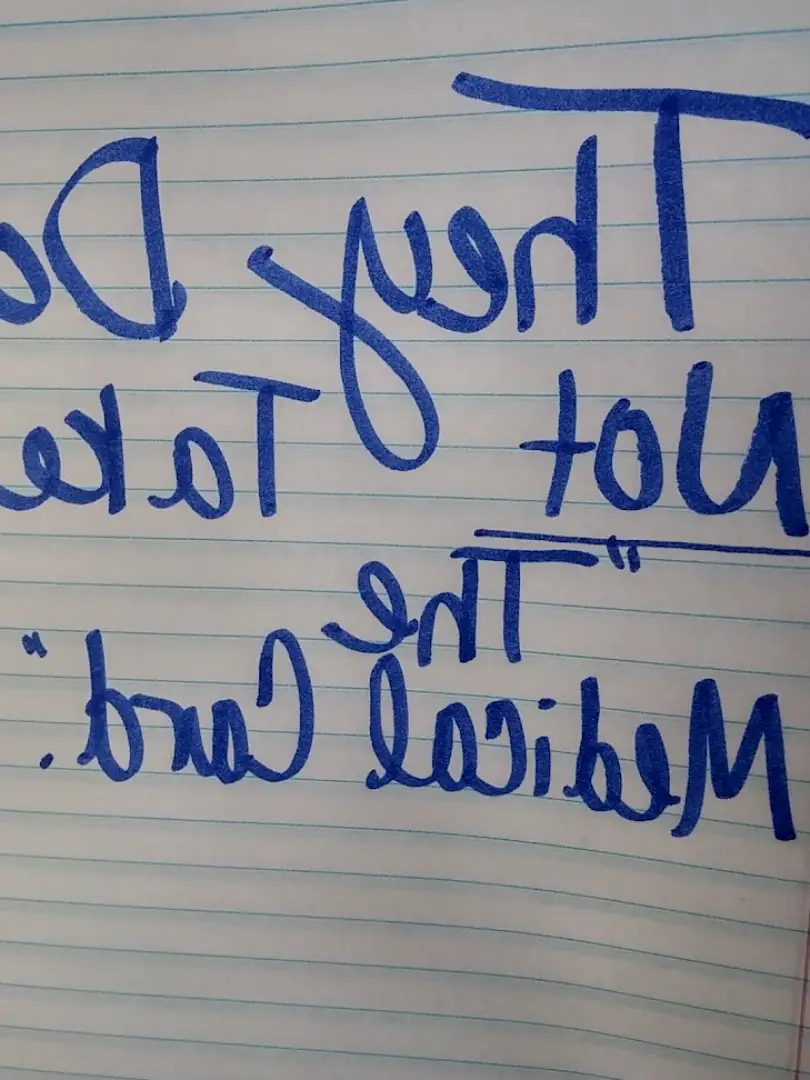 They Do
Not Take
"The
Medical Card."